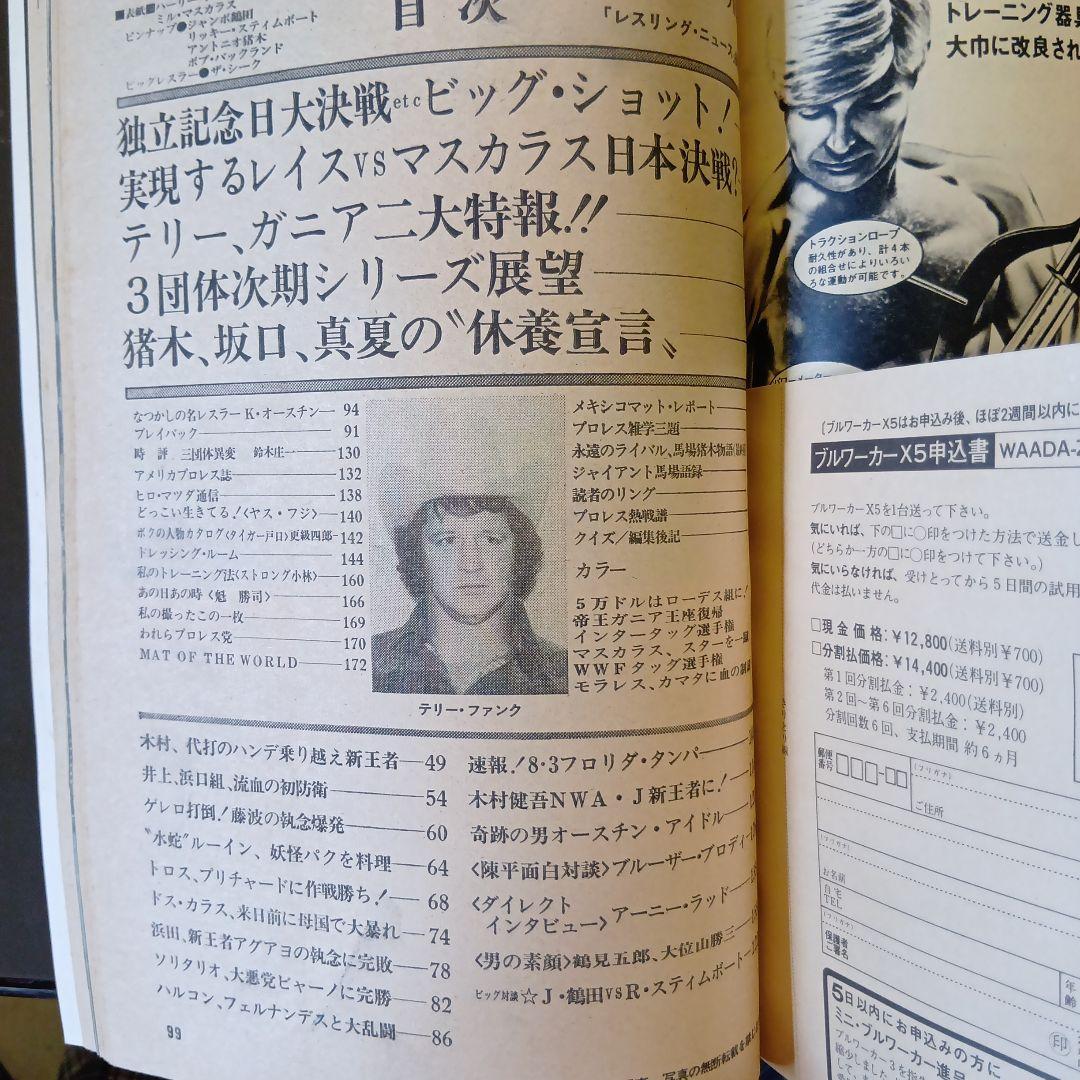 ■表紙■ハーリー・
ミル・マスカラス
ピンナップ●ジャンボ鶴田
リッキー・スティムボート
アントニオ猪木
ボブ・バックランド
ビッグレスラー●ザ・シーク
目次
「レスリング・ニュース
独立記念日大決戦etcビッグ・ショット!
実現するレイスVSマスカラス日本決戦?
テリー、ガニア二大特報!!
3団体次期シリーズ展望
猪木、坂口、真夏の〝休養宣言〟
なつかしの名レスラー K・オースチン 94
プレイバック 91
時評 三団体異変 鈴木庄一 130
アメリカプロレス誌 132
ヒロ・マツダ通信 138
どっこい生きてる!〈ヤス・フジ〉 140
ボクの人物カタログ〈タイガー戸口〉更級四郎 142
ドレッシング・ルーム 144
私のトレーニング法〈ストロング小林〉 160
あの日あの時〈魁 勝司〉 166
私の撮ったこの一枚 169
われらプロレス党 170
MAT OF THE WORLD 172
テリー・ファンク
メキシコマット・レポート
プロレス雑学三題
永遠のライバル、馬場猪木物語
ジャイアント馬場語録
読者のリング
プロレス熱戦譜
クイズ/編集後記
カラー
5万ドルはローデス組に!
帝王ガニア王座復帰
インタータッグ選手権
マスカラス、スターを一蹴
WWFタッグ選手権
モラレス、カマタに血の制裁
木村、代打のハンデ乗り越え新王者 49
井上、浜口組、流血の初防衛 54
ゲレロ打倒!藤波の執念爆発 60
〝水蛇〟ルーイン、妖怪パクを料理 64
トロス、プリチャードに作戦勝ち! 68
ドス・カラス、来日前に母国で大暴れ 74
浜田、新王者アグアヨの執念に完敗 78
ソリタリオ、大悪党ビヤーノに完勝 82
ハルコン、フェルナンデスと大乱闘 86
速報!8・3フロリダ・タンパー
木村健吾NWA・J新王者に!
奇跡の男オースチン・アイドル
〈陳平面白対談〉ブルーザー・ブロディ
〈ダイレクト
インタビュー〉アーニー・ラッド
〈男の素顔〉鶴見五郎、大位山勝三
ビッグ対談☆J・鶴田VSR・スティムボート
99
写真の無断転載を
トレーニング器具
大巾に改良され
トラクションロープ
耐久性があり、計4本
の組合せによりいろい
ろな運動が可能です。
パワーメーター
〔ブルワーカーX5はお申込み後、ほぼ2週間以内に
ブルワーカーX5申込書 WAADA-
ブルワーカーX5を1台送って下さい。
気にいれば、下の□に○印をつけた方法で送金し
(どちらか一方の□に○印をつけて下さい。)
気にいらなければ、受けとってから5日間の試用
代金は払いません。
□現金価格:¥12,800(送料別¥700)
□分割払価格:¥14,400(送料別¥700)
第1回分割払金:¥2,400(送料別)
第2回〜第6回分割払金:¥2,400
分割回数6回、支払期間 約6ヵ月
郵便
番号
(フリガナ)
ご住所
(フリガナ)
お名前
自宅
TEL
(フリガナ)
保護者
ご署名
年
齢
印
5日以内にお申込みの方に
ミニ・ブルワーカー進呈
ブルワーカー3を指
縮少しました